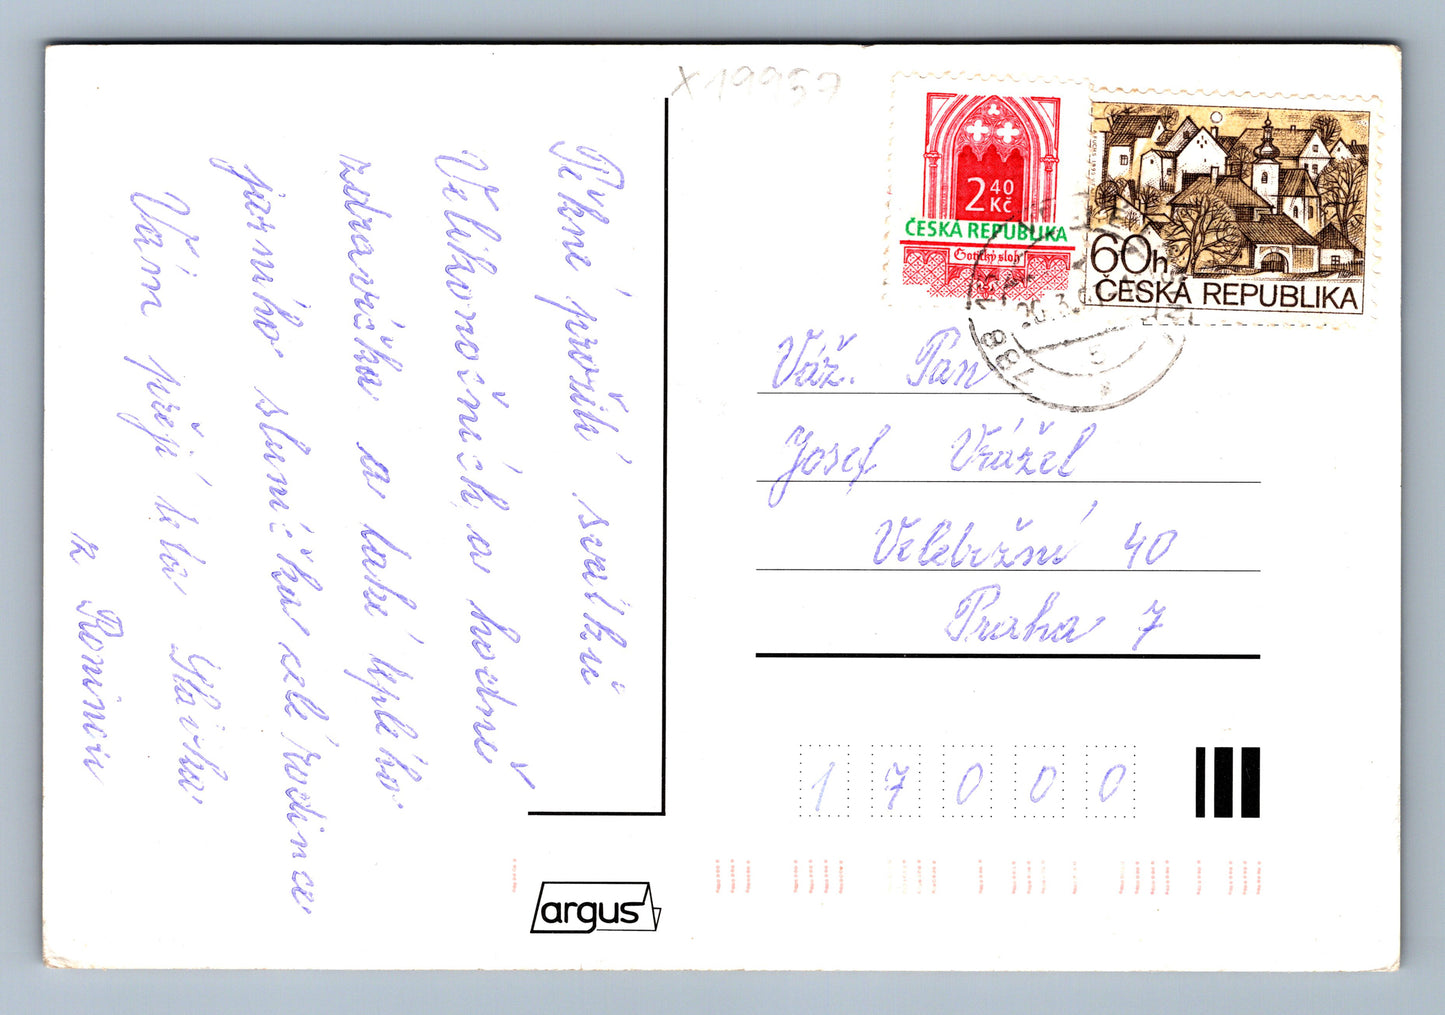 Pěkné prožití svátků
Velikonočních, a hodně
zdravíčka a také teplého
jarního sluníčka celé rodince
Vám přejí teta Slávka
z Ronino
X19957
2 40 Kč
ČESKÁ REPUBLIKA
Gotický sloh
60h
ČESKÁ REPUBLIKA
788
Váž. Pan
Josef Vrážel
Veletržní 40
Praha 7
1 7 0 0 0
argus